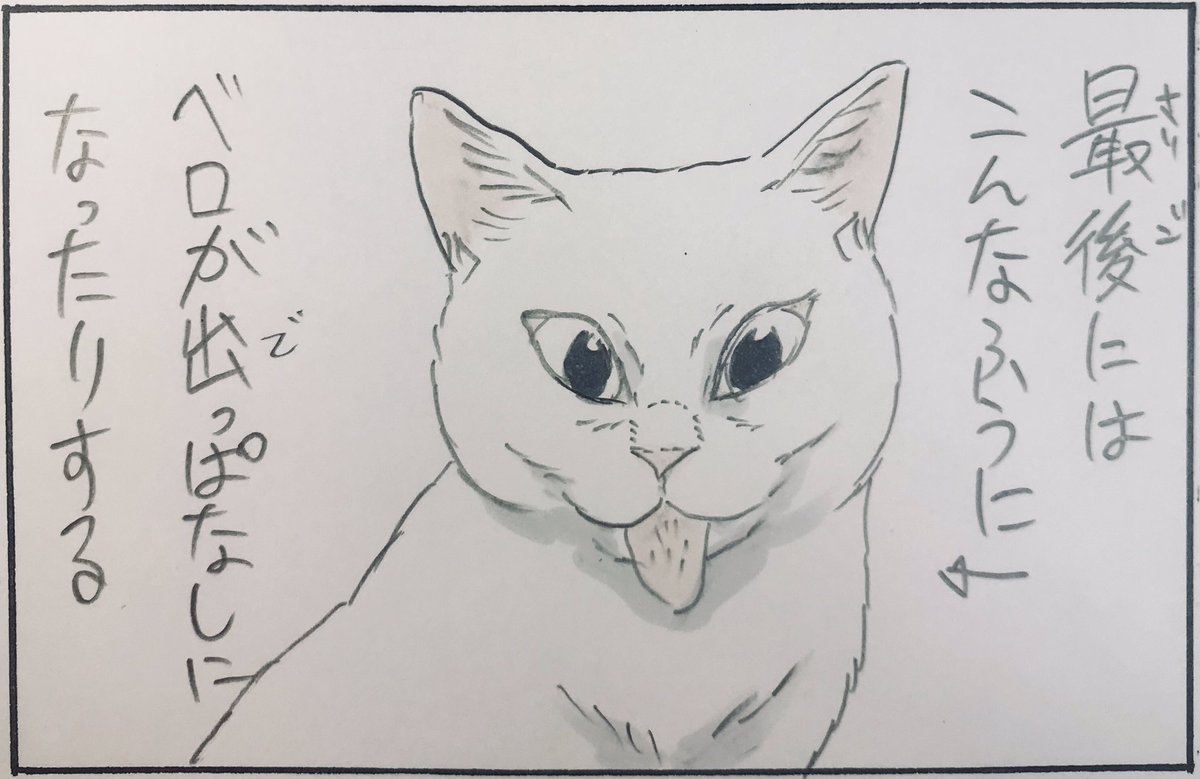 最後には
こんなふうに
ベロが出っぱなしに
なったりする
さいご
で